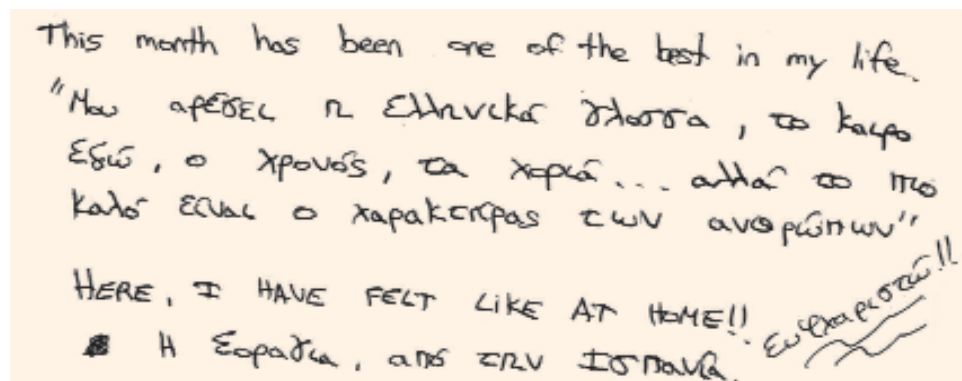 This month has been one of the best in my life.
"Μου αρέσει η ελληνικά γλοσσα, το καιρο
εδώ, ο χρονός, τα χοριά... αλλά το πιο
καλό είναι ο χαρακτήρας των ανθρώπων"
HERE, I HAVE FELT LIKE AT HOME!!
Ευφχαριστώ!!
Η Σοραγια, από την Ισπανία.